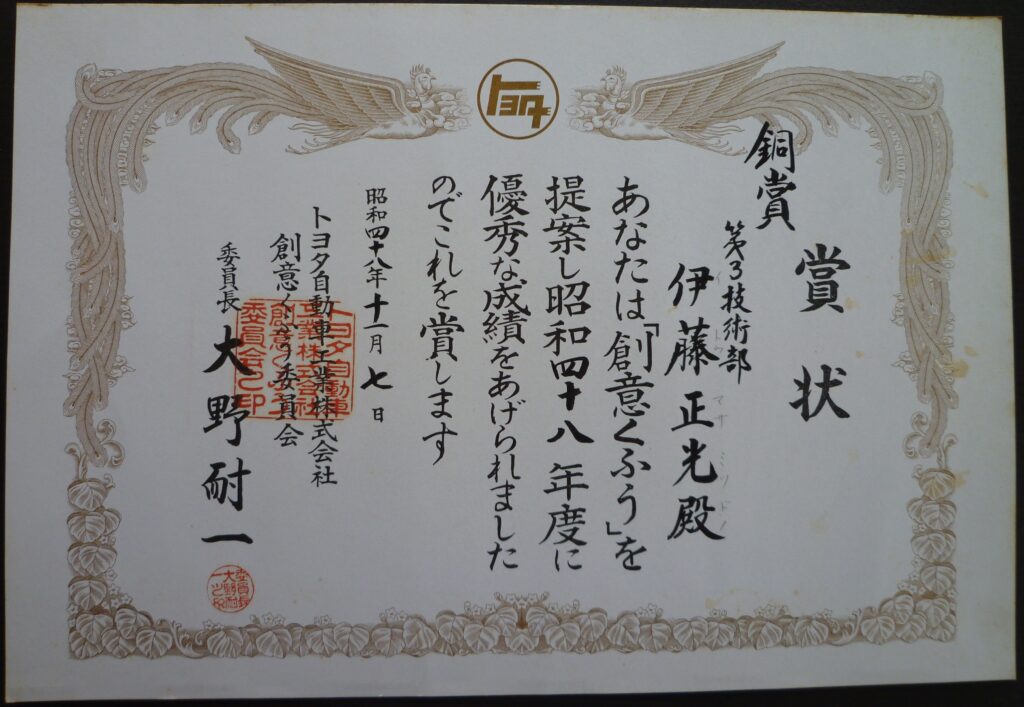 トヨタ
銅賞
賞状
第3技術部
伊藤正光殿
イトウマサミツドノ
あなたは「創意くふう」を
提案し昭和四十八年度に
優秀な成績をあげられました
のでこれを賞します
昭和四十八年十一月七日
トヨタ自動車工業株式会社
創意くふう委員会
委員長 大野耐一
トヨタ自動車
工業株式会社
創意くふう
委員会之印